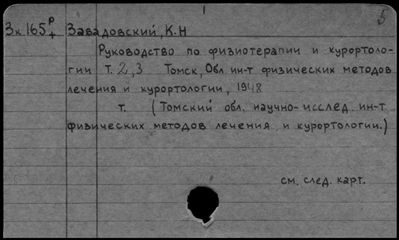 Зк 165 р/+ Завадовский, К.Н
Руководство по физиотерапии и курортоло-
гии Т. 2, 3 Томск, Обл ин-т физических методов
лечения и курортологии, 1948
т. (Томский обл. научно-исслед. ин-т
физических методов лечения и курортологии.)
см. след. карт.